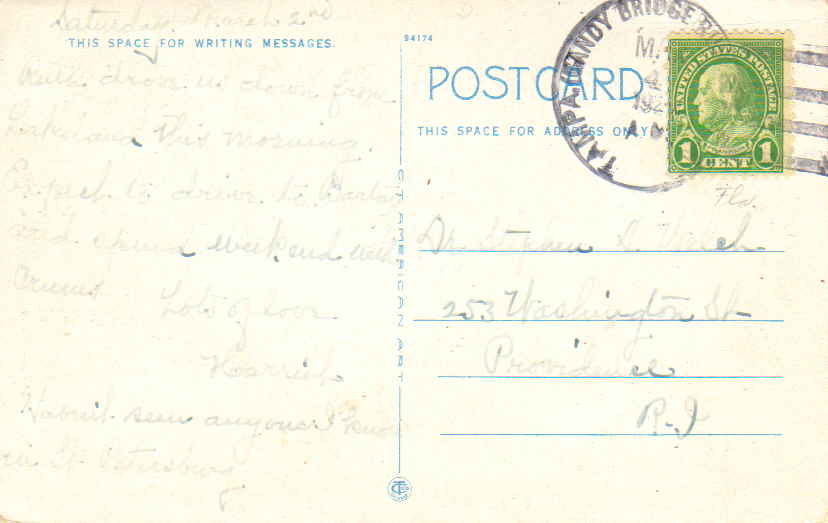 Saturday, March 2nd
THIS SPACE FOR WRITING MESSAGES.
drove us down from
Lakeland this morning.
Expect to drive to Bartow
and spend weekend with
Lots of love
Harriet
Haven't seen anyone I know
in St. Petersburg
94174
POST CARD
THIS SPACE FOR ADDRESS ONLY
C.T. AMERICAN ART
TAMPA, GANDY BRIDGE
M
4
192
A.M.
UNITED STATES POSTAGE
FRANKLIN
1 CENT 1
Fla.
Dr. Stephen A. Welch
253 Washington St
Providence
R-I